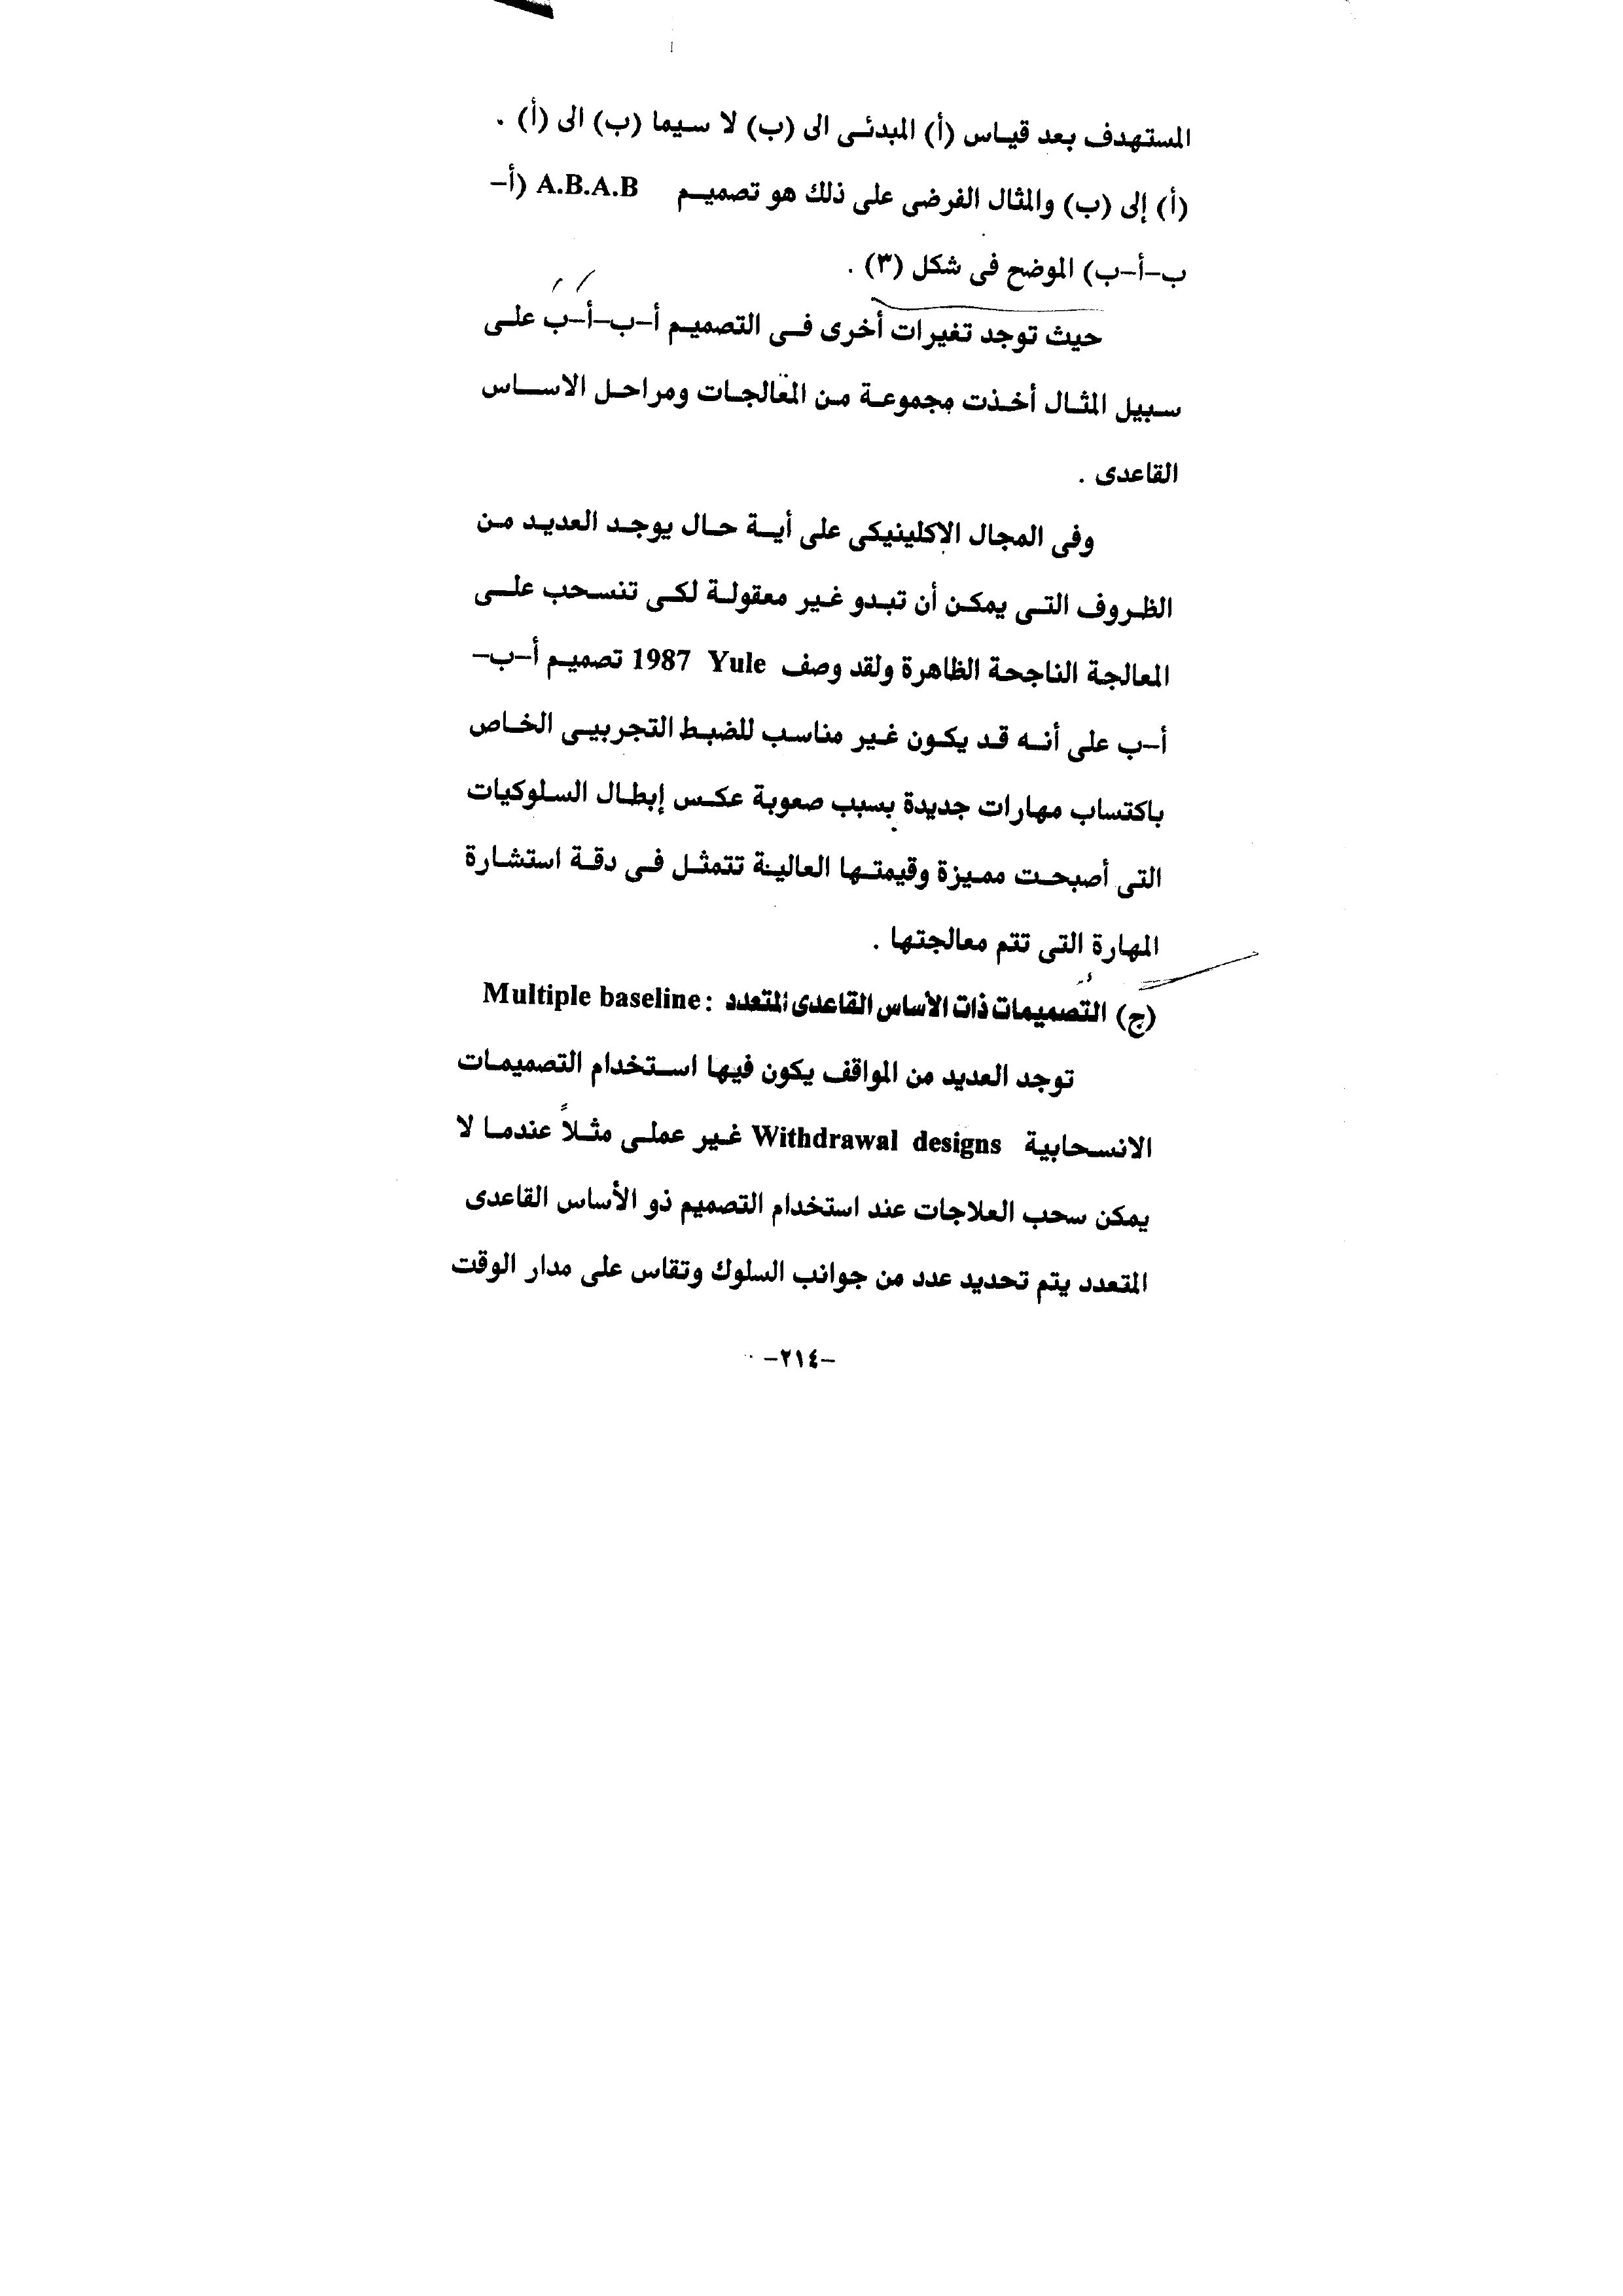 المستهدف بعد قياس (أ) المبدئى الى (ب) لا سيما (ب) الى (أ) .
(أ) إلى (ب) والمثال الفرضى على ذلك هو تصميم A.B.A.B (أ-
ب-أ-ب) الموضح فى شكل (٣) .
حيث توجد تغيرات أخرى فى التصميم أ-ب-أ-ب على
سبيل المثال أخذت مجموعة من المعالجات ومراحل الاساس
القاعدى .
وفى المجال الإكلينيكى على أية حال يوجد العديد من
الظروف التى يمكن أن تبدو غير معقولة لكى تنسحب على
المعالجة الناجحة الظاهرة ولقد وصف Yule 1987 تصميم أ-ب-
أ-ب على أنه قد يكون غير مناسب للضبط التجريبى الخاص
باكتساب مهارات جديدة بسبب صعوبة عكس إبطال السلوكيات
التى أصبحت مميزة وقيمتها العالية تتمثل فى دقة استشارة
المهارة التى تتم معالجتها .
(ج) التصميمات ذات الأساس القاعدى المتعدد : Multiple baseline
توجد العديد من المواقف يكون فيها استخدام التصميمات
الانسحابية Withdrawal designs غير عملى مثلاً عندما لا
يمكن سحب العلاجات عند استخدام التصميم ذو الأساس القاعدى
المتعدد يتم تحديد عدد من جوانب السلوك وتقاس على مدار الوقت
-٢١٤-